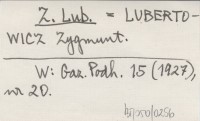 Z. Lub. = LUBERTO-
WICZ Zygmunt.
W: Gaz. Podh. 15 (1927),
nr 20.